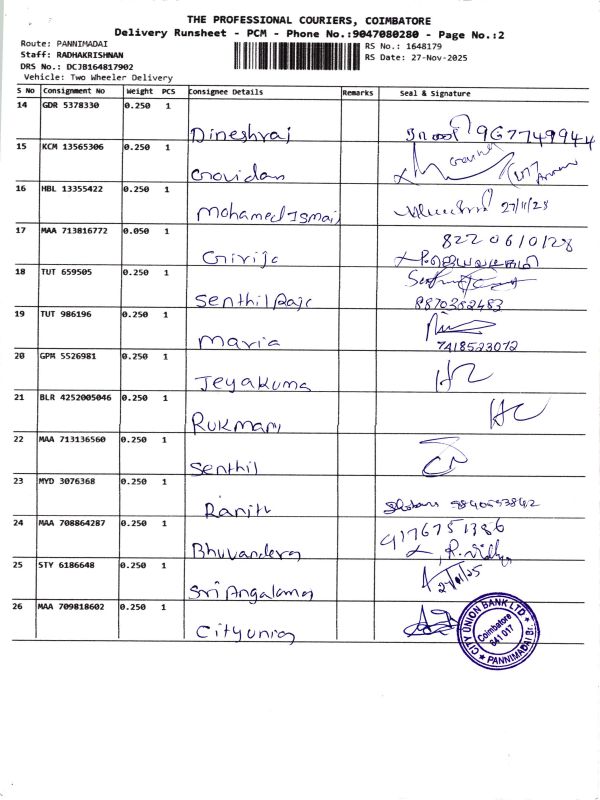 THE PROFESSIONAL COURIERS, COIMBATORE
Delivery Runsheet - PCM - Phone No.:9047080280 - Page No.:2
Route: PANNIMADAI
RS No.: 1648179
Staff: RADHAKRISHNAN
RS Date: 27-Nov-2025
DRS No.: DCJB164817902
Vehicle: Two Wheeler Delivery
S No Consignment No Weight PCS Consignee Details Remarks Seal & Signature
14 GDR 5378330 0.250 1
Dineshraj 9677749944
15 KCM 13565306 0.250 1
Govidan
16 HBL 13355422 0.250 1
Mohamed Ismail 27/11/25
17 MAA 713816772 0.050 1
8220610128
Girija
18 TUT 659505 0.250 1
Senthil Raja 8870382483
19 TUT 986196 0.250 1
Maria 7418523072
20 GPM 5526981 0.250 1
Jeyakuma
21 BLR 4252005046 0.250 1
Rukmani
22 MAA 713136560 0.250 1
Senthil
23 MYD 3076368 0.250 1
Ranith
24 MAA 708864287 0.250 1
9176751386
R. Vidhya
25 STY 6186648 0.250 1
27/11/25
Sri Angalama
26 MAA 709818602 0.250 1
City union
CITY UNION BANK LTD
Coimbatore
641 017
PANNIMADAI Br.